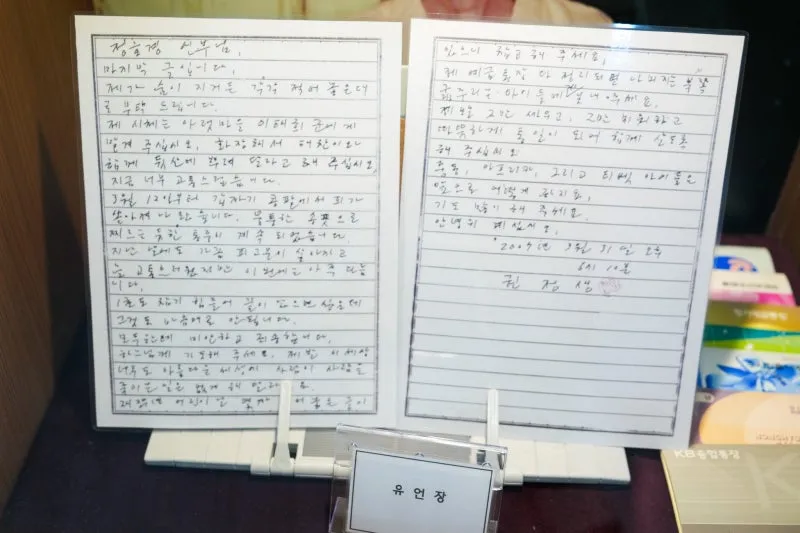 정호경 신부님,
마지막 글입니다.
제가 숨이 지거든 각각 적어 놓은대
로 부탁 드립니다.
제 시체는 아랫마을 이태희 군에게
맡겨 주십시오. 화장해서 해찬이와
함께 뒷산에 뿌려 달라고 해 주십시오.
지금 너무 고통스럽습니다.
3월 12일부터 갑자기 콩팥에서 피가
쏟아져 나왔습니다. 뭉툭한 송곳으로
찌르는 듯한 통증이 계속 되었습니다.
지난 날에도 가끔 피고름이 쏟아지고
늘 고통스러웠지만 이번에는 아주 다릅
니다.
1초도 참기 힘들어 끝이 났으면 싶은데
그것도 마음대로 안됩니다.
모두한테 미안하고 죄송합니다.
하느님께 기도해 주세요. 제발 이 세상
너무도 아름다운 세상에 사람이 사람을
죽이는 일은 없게 해 달라고요.
제 어린이날 몇자 적어 놓은 글이
있으니 참고해 주세요.
제 예금통장 다 정리되면 나머지는 북쪽
굶주리는 아이들에게 보내 주세요.
제발 그만 싸우고, 그만 미워하고
따뜻하게 통일이 되어 함께 살도록
해 주십시오.
중동, 아프리카, 그리고 티벳 아이들은
앞으로 어떻게 하지요.
기도 많이 해 주세요.
안녕히 계십시오.
2007년 3월 31일 오후
6시 10분
권 정 생
유 언 장
KB종합통장